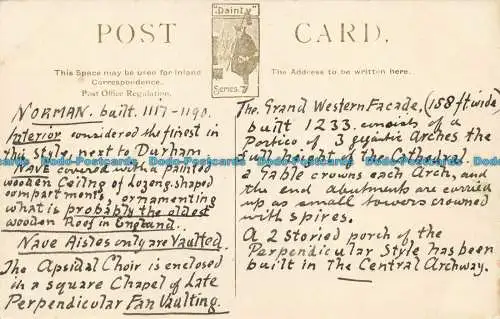 POST CARD.
"Dainty"
Series.
This Space may be used for Inland
Correspondence.
Post Office Regulation.
The Address to be written here.
NORMAN. built. 1117-1190.
Interior considered the finest in
this style, next to Durham
NAVE covered with a painted
wooden Ceilng of Lozeng. shaped
compartments, ornamenting
what is probably the oldest
wooden Roof in England..
Nave Aisles only are Vaulted.
The Apsidal Choir is enclosed
in a square Chapel of Late
Perpendicular Fan Vaulting.
The Grand Western Facade, (158 ft wide)
built 1233. consists of a
Portico of 3 gigantic Arches the
full height of the Cathedral
a Gable crowns each Arch, and
the end abutments are carried
up as small towers crowned
with spires.
A 2 storied porch of the
Perpendicular Style has been
built in The Central Archway.
Dodo-Postcards Dodo-Postcards Dodo-Postcards Dodo-Postcards